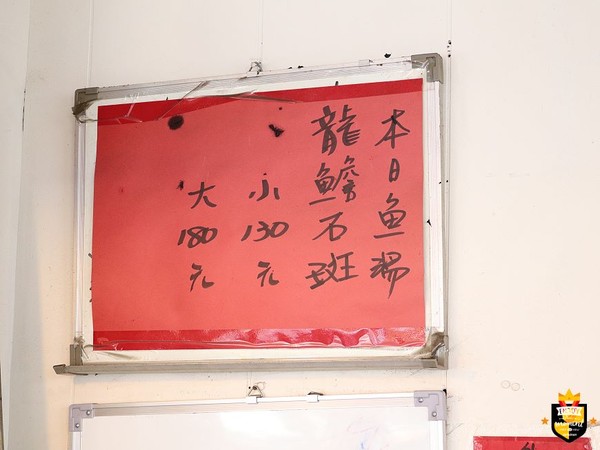 本日魚湯
龍鱠石斑
小130元
大180元